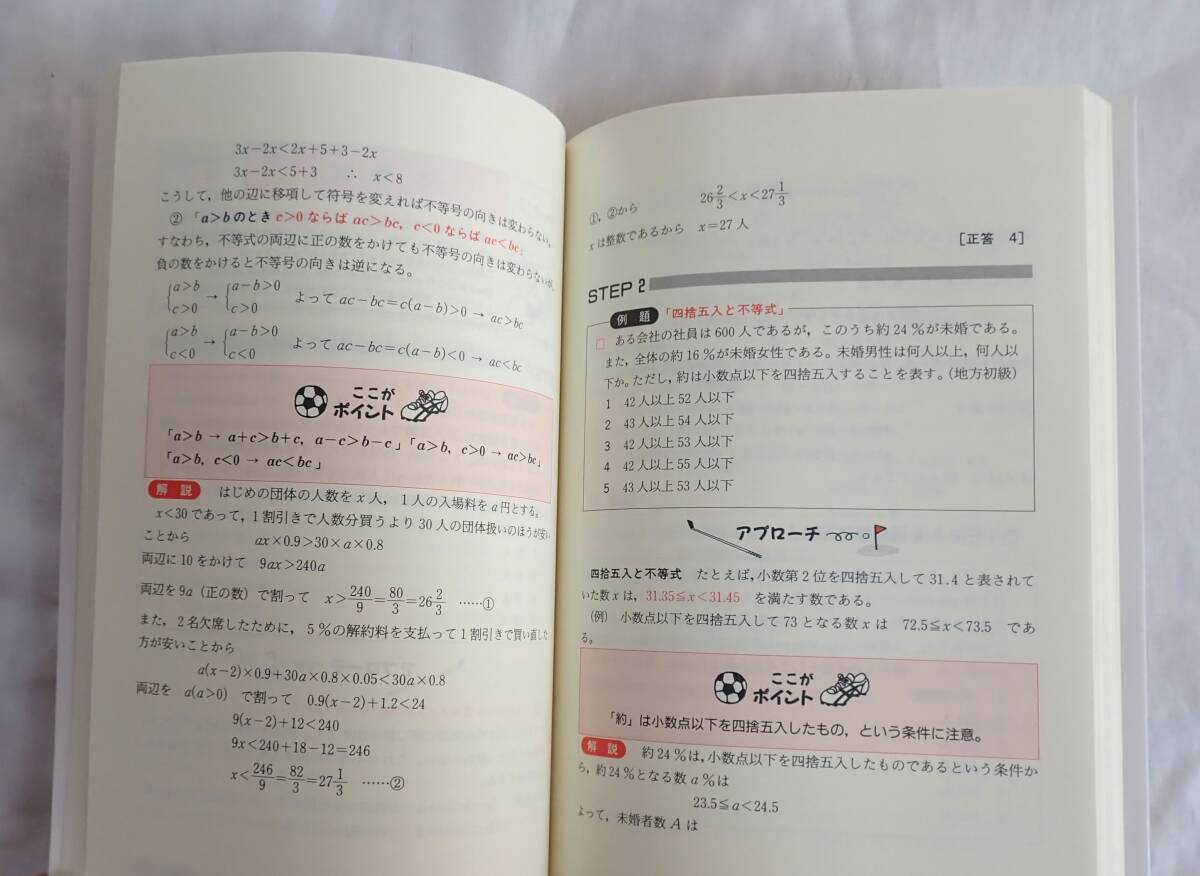 3x−2x<2x+5+3−2x
3x−2x<5+3 ∴ x<8
こうして，他の辺に移項して符号を変えれば不等号の向きは変わらない。
② 「a>bのとき c>0ならば ac>bc，c<0ならば ac<bc」
すなわち，不等式の両辺に正の数をかけても不等号の向きは変わらないが，
負の数をかけると不等号の向きは逆になる。
{a>b c>0 → {a−b>0 c>0 よって ac−bc=c(a−b)>0 → ac>bc
{a>b c<0 → {a−b>0 c<0 よって ac−bc=c(a−b)<0 → ac<bc
ここが
ポイント
「a>b → a+c>b+c，a−c>b−c」「a>b，c>0 → ac>bc」
「a>b，c<0 → ac<bc」
解説 はじめの団体の人数を x 人，1人の入場料を a 円とする。
x<30 であって，1割引きで人数分買うより 30 人の団体扱いのほうが安い
ことから ax×0.9>30×a×0.8
両辺に 10 をかけて 9ax>240a
両辺を 9a（正の数）で割って x>240/9=80/3=26 2/3 ……①
また，2名欠席したために，5％の解約料を支払って1割引きで買い直した
方が安いことから
a(x−2)×0.9+30a×0.8×0.05<30a×0.8
両辺を a(a>0) で割って 0.9(x−2)+1.2<24
9(x−2)+12<240
9x<240+18−12=246
x<246/9=82/3=27 1/3 ……②
①，②から 26 2/3<x<27 1/3
x は整数であるから x=27 人
［正答 4］
STEP 2
例題 「四捨五入と不等式」
□ ある会社の社員は 600 人であるが，このうち約 24％が未婚である。
また，全体の約 16％が未婚女性である。未婚男性は何人以上，何人以
下か。ただし，約は小数点以下を四捨五入することを表す。（地方初級）
1 42 人以上 52 人以下
2 43 人以上 54 人以下
3 42 人以上 53 人以下
4 42 人以上 55 人以下
5 43 人以上 53 人以下
アプローチ
四捨五入と不等式 たとえば，小数第2位を四捨五入して 31.4 と表されて
いた数 x は，31.35≦x<31.45 を満たす数である。
（例） 小数点以下を四捨五入して 73 となる数 x は 72.5≦x<73.5 であ
る。
ここが
ポイント
「約」は小数点以下を四捨五入したもの，という条件に注意。
解説 約 24％は，小数点以下を四捨五入したものであるという条件か
ら，約 24％となる数 a％は
23.5≦a<24.5
よって，未婚者数 A は